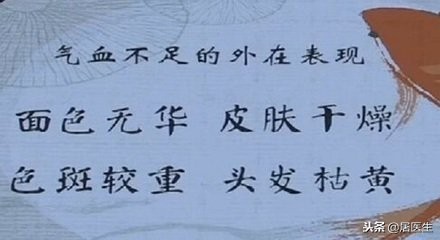 气血不足的外在表现
面色无华 皮肤干燥
色斑较重 头发枯黄
头条@居医生